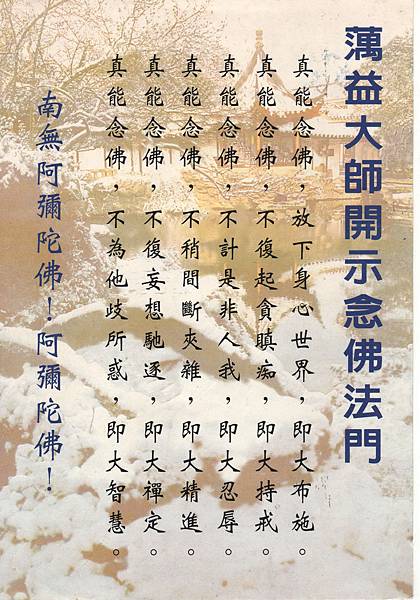 蕅益大師開示念佛法門
真能念佛，放下身心世界，即大布施。
真能念佛，不復起貪瞋痴，即大持戒。
真能念佛，不計是非人我，即大忍辱。
真能念佛，不稍間斷夾雜，即大精進。
真能念佛，不復妄想馳逐，即大禪定。
真能念佛，不為他歧所惑，即大智慧。
南無阿彌陀佛！阿彌陀佛！